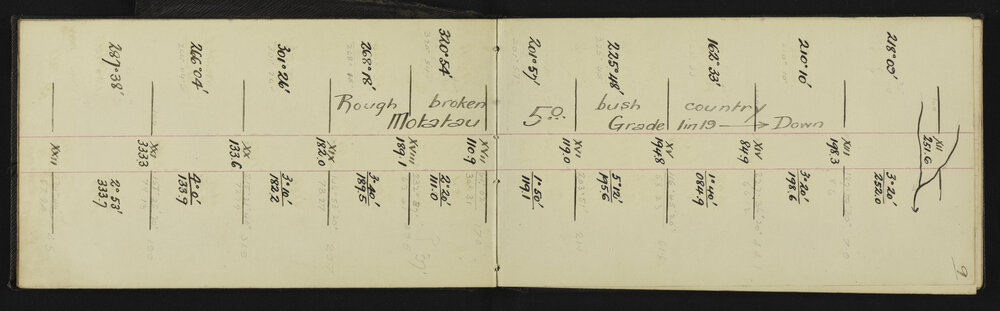 9
218°00'
XII
251.6
3°20'
252.0
210°10'
XIII
198.3
3°20'
198.6
162°33'
XIV
84.9
1°40'
084.9
225°48'
XV
194.8
5°12'
195.6
201°57'
XVI
119.0
1°50'
119.1
320°54'
XVII
110.9
2°20'
111.0
268°18'
XVIII
189.1
3°40'
189.5
301°26'
XIX
182.0
3°10'
182.2
266°04'
XX
133.6
4°0'
133.9
287°38'
XXI
333.3
2°53'
333.7
XXII
Rough broken bush country
Motatau 5.0. Grade 1 in 19 → Down